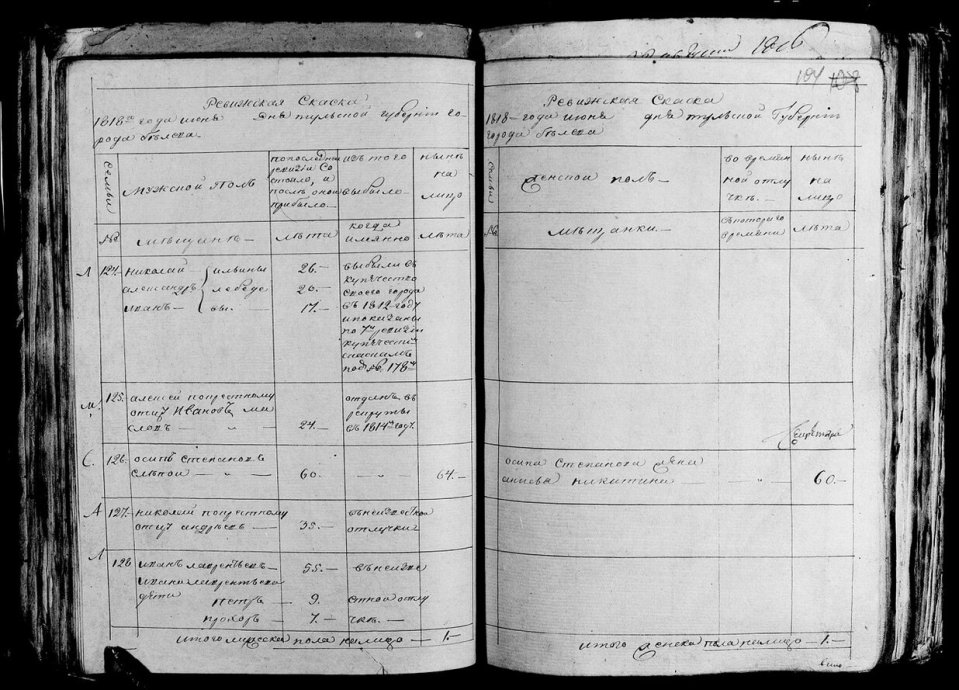 Ревижская Скаска
1818го года июня дня тульской губерніи го-
рода бѣлева
семьи
мужской полъ
по последней ревизіи Со стояло, и послѣ оной прибыло
изъ того выбыло
нынѣ на лицо
№
мѣщинѣ
лѣта
когда имянно
лѣта
Л
124. николай
александръ
иванъ
ильины
лебеде
вы.
26.
20.
17.
выбыли въ
купечество
своего города
въ 1812 году
и показаны
по 7й ревизіи
купечест
скаскамъ
подъ № 178м
М.
125. алексей попрестному
отцу Ивановъ ми
словъ
24.
отданъ въ
рекруты
въ 1814м году
С.
126. осипъ степановъ
слѣпой
60.
64.
А
127. николай попрестному
отцу андреевъ
35.
въ неизвестной
отлучки
Л
128 иванъ лаврентьевъ
ивана лаврентьева
дѣти
петръ
прохоръ
55.
9.
7.
въ неизве
стной отлу
чкѣ.
итого мужска пола налицо 1.
1816
184
Ревижская Скаска
1818 года июня дня тульской Губерніи
города бѣлева
семьи
женской полъ
во времян ной отлу чкѣ.
нынѣ на лицо
№
мѣщанки.
с котораго времяни
лѣта
осипа степанова жена
никитина
60.
итого женска пола налицо 1.